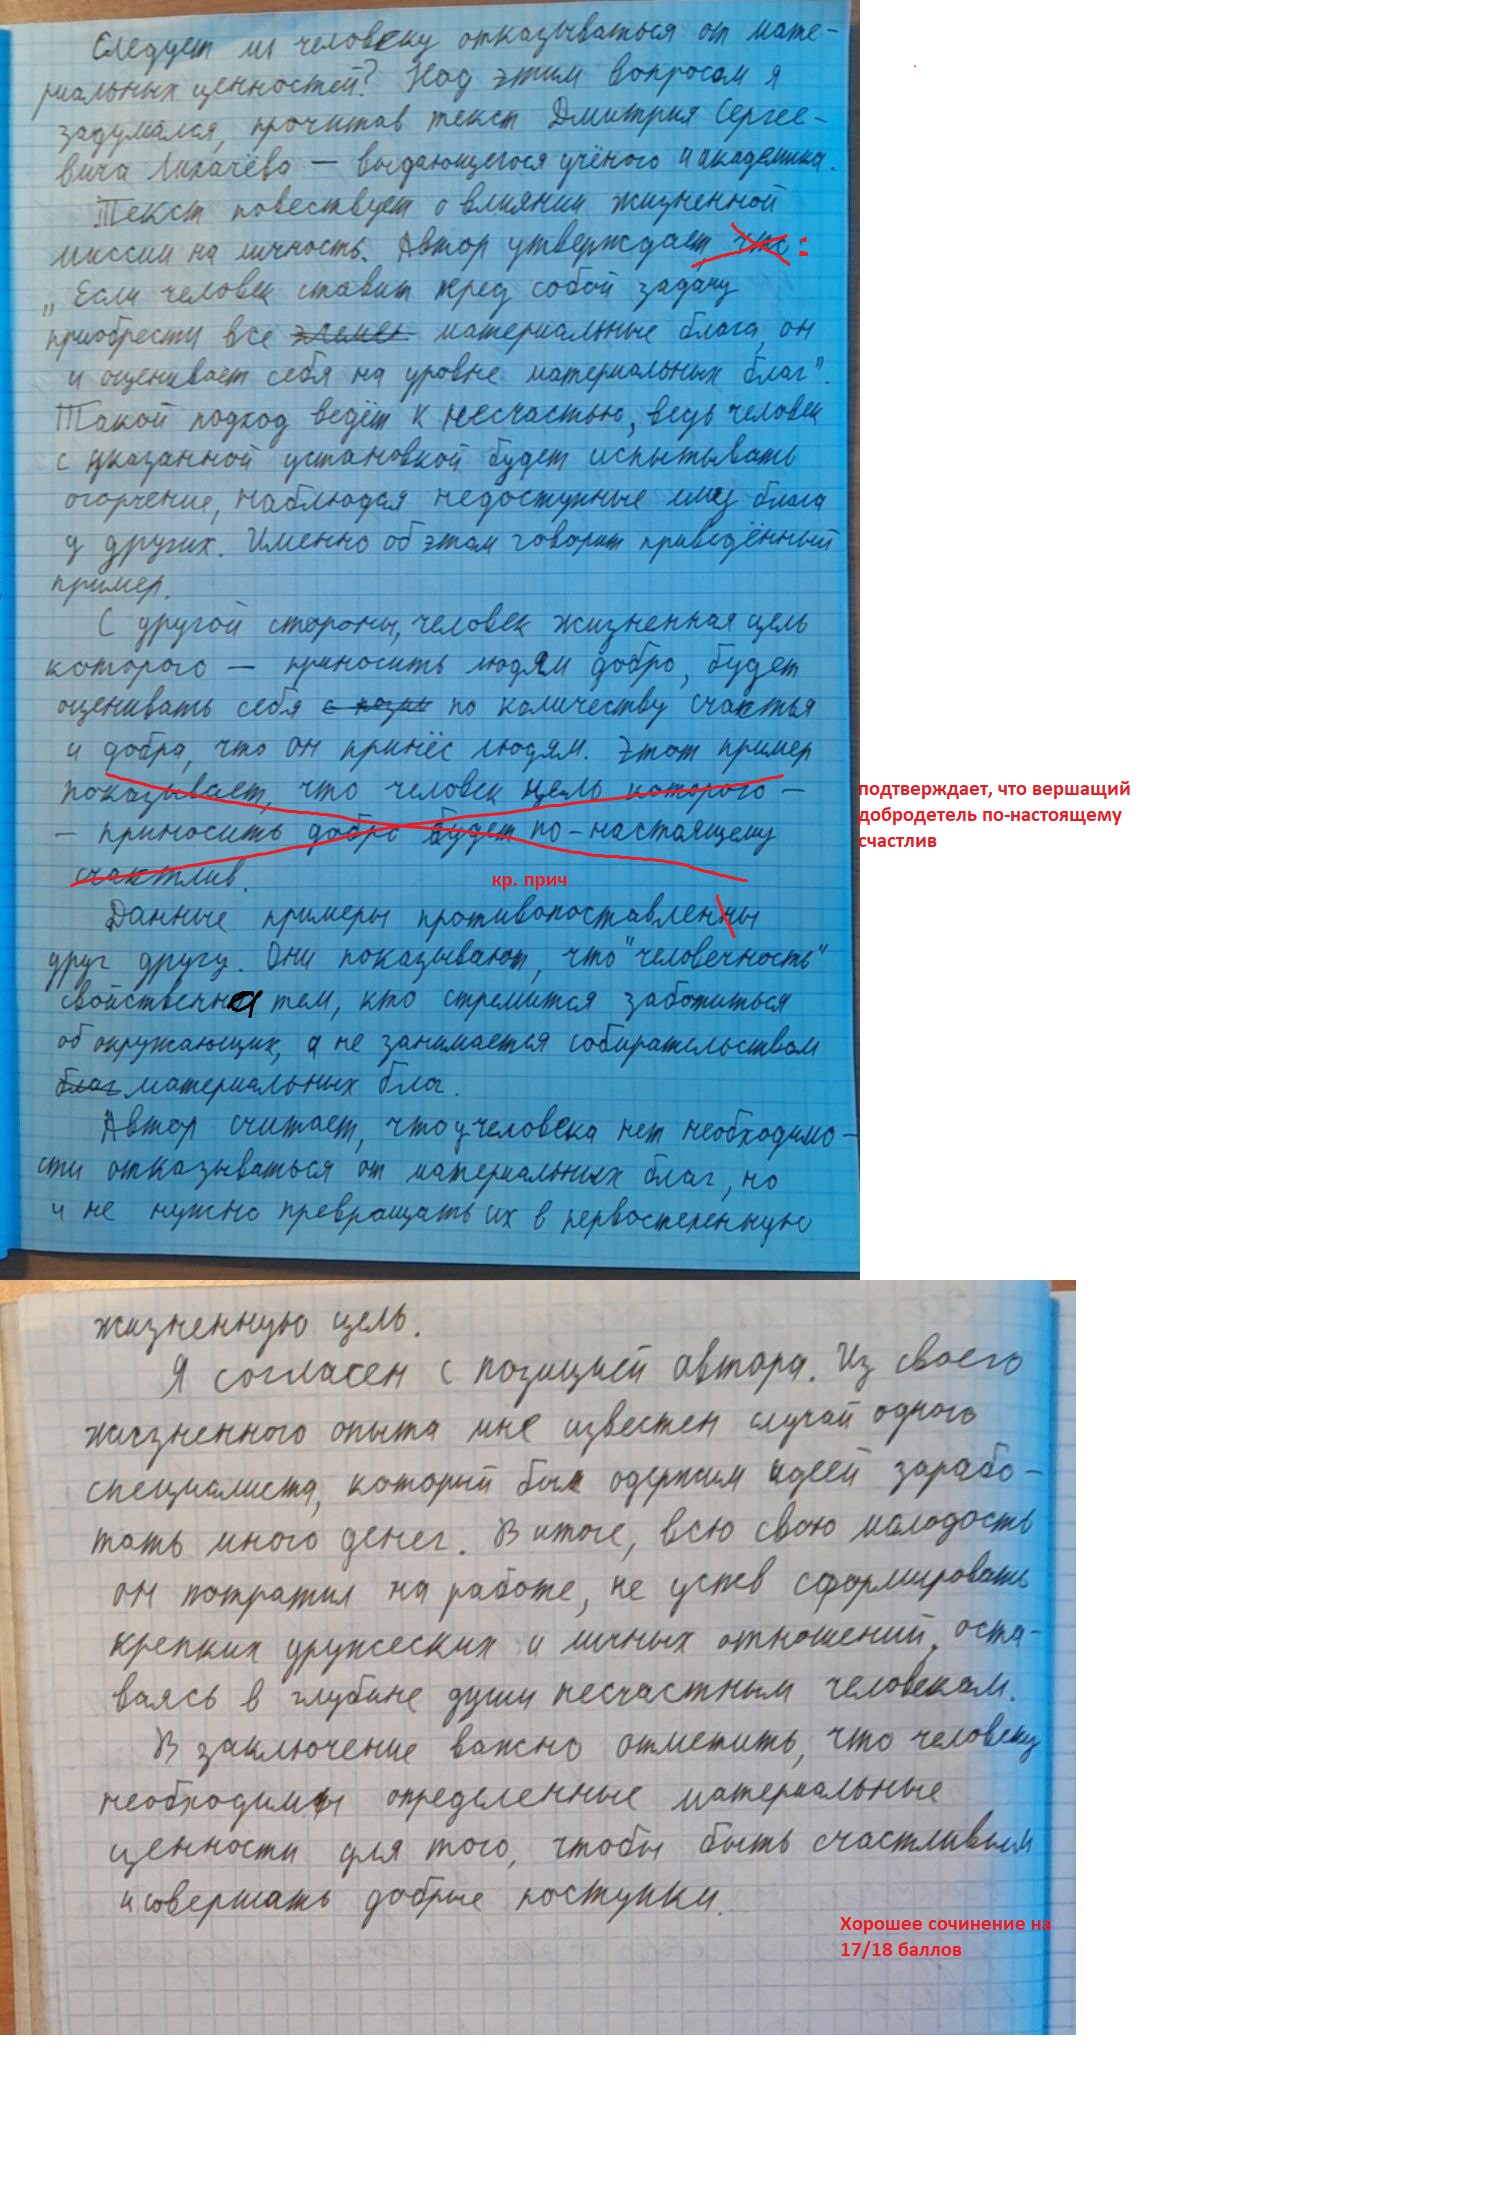 Следует ли человеку отказываться от мате-
риальных ценностей? Над этим вопросом я
задумался, прочитав текст Дмитрия Сергее-
вича Лихачёва — выдающегося учёного и академика.
Текст повествует о влиянии жизненной
миссии на личность. Автор утверждает, что:
„Если человек ставит перед собой задачу
приобрести все элемен материальные блага, он
и оценивает себя на уровне материальных благ".
Такой подход ведёт к несчастью, ведь человек
с указанной установкой будет испытывать
огорчение, наблюдая недоступные ему блага
у других. Именно об этом говорит приведённый
пример.
С другой стороны, человек жизненная цель
которого — приносить людям добро, будет
оценивать себя с пози по количеству счастья
и добра, что он принёс людям. Этот пример
показывает, что человек цель которого —
— приносить добро будет по-настоящему
счастлив.
подтверждает, что вершащий
добродетель по-настоящему
счастлив
кр. прич
Данные примеры противопоставленны
друг другу. Они показывают, что "человечность"
свойственна тем, кто стремится заботиться
об окружающих, а не занимается собирательством
благ материальных благ.
Автор считает, что у человека нет необходимо-
сти отказываться от материальных благ, но
и не нужно превращать их в первостепенную
жизненную цель.
Я согласен с позицией автора. Из своего
жизненного опыта мне известен случай одного
специалиста, который был одержим идеей зарабо-
тать много денег. В итоге, всю свою молодость
он потратил на работе, не успев сформировать
крепких дружеских и личных отношений, оста-
ваясь в глубине души несчастным человеком.
В заключение важно отметить, что человеку
необходимы определенные материальные
ценности для того, чтобы быть счастливым
и совершать добрые поступки.
Хорошее сочинение на
17/18 баллов